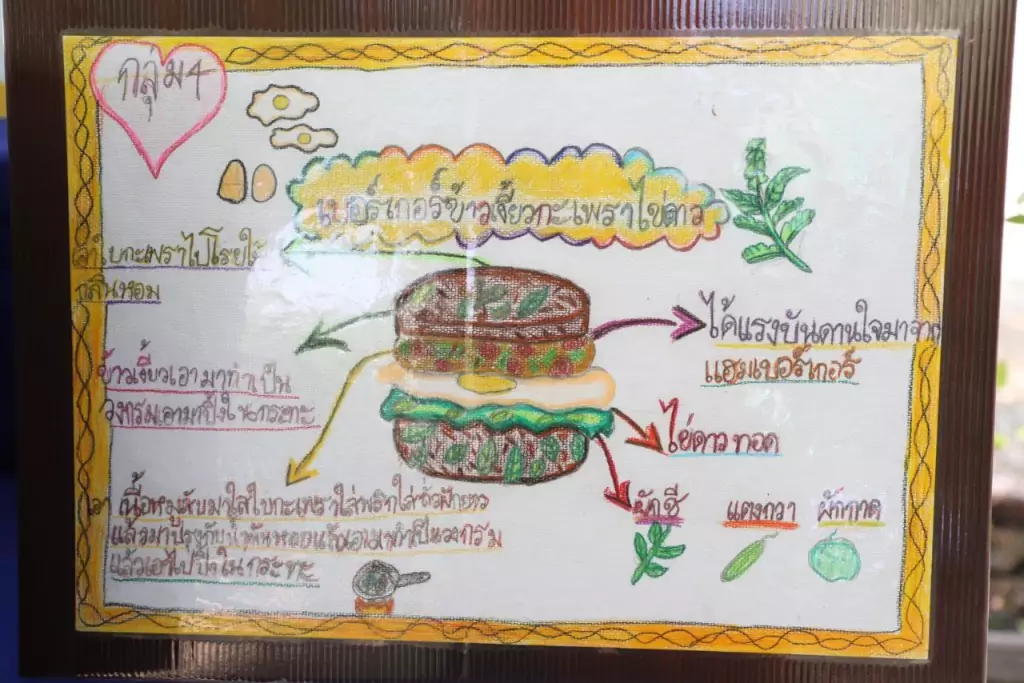 กลุ่ม4
เบอร์เกอร์ข้าวเงี้ยวกะเพราไข่ดาว
ใบกะเพราไปโรยให้
กลิ่นหอม
ข้าวเงี้ยวเอามาทำเป็น
วงกรมเอามาปิ้งในกระทะ
ได้แรงบันดานใจมาจาก
แฮมเบอร์เกอร์
ไข่ดาวทอด
ผักชี
แตงกวา
ผักกาด
เอาเนื้อหมูสับมาใส่ใบกะเพราใส่พริกใส่ถั่วฝักยาว
แล้วมาปรุงกับน้ำมันหอยแล้วเอามาทำเป็นวงกรม
แล้วเอาไปปิ้งในกระทะ